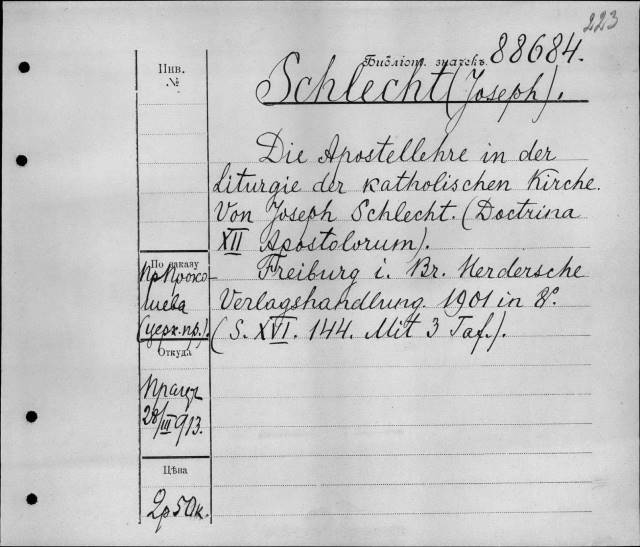 223
Библіот. значекъ. 88684.
Инв.
№
Schlecht (Joseph).
Die Apostellehre in der
Liturgie der katholischen Kirche.
Von Joseph Schlecht. (Doctrina
XII Apostolorum).
Freiburg i. Br. Herdersche
Verlagshandlung. 1901 in 8°.
(S. XVI. 144. Mit 3 Taf.).
По заказу
Пр Проко-
шева
(церк. пр.).
Откуда
28/III 913.
Цѣна
2р 50к.